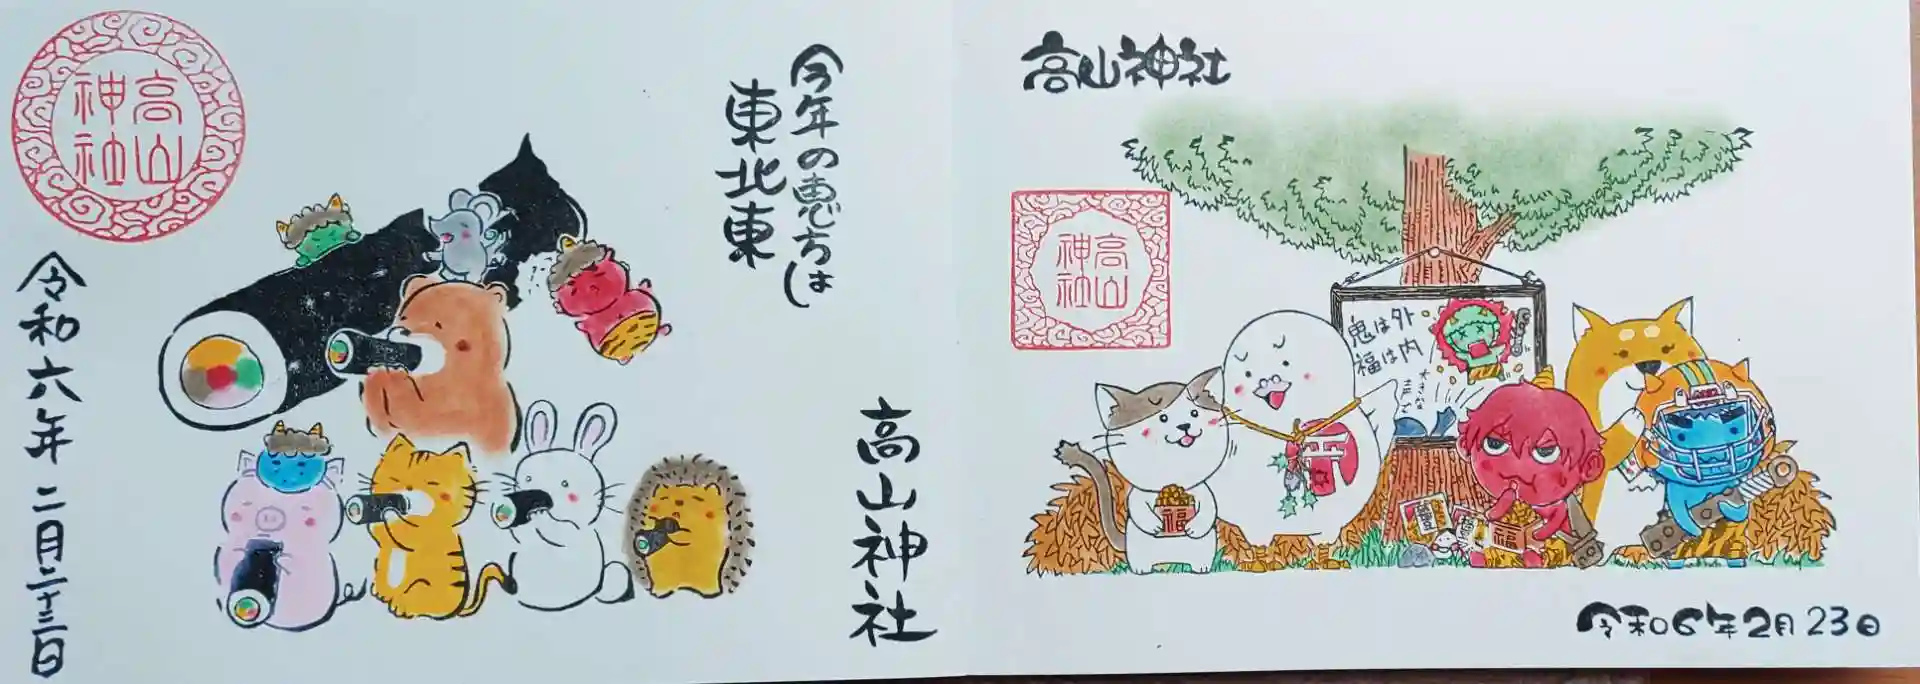 高山
神社
今年の恵方は
東北東
高山神社
令和六年 二月二十三日
高山神社
高山
神社
鬼は外
福は内
大きな
声で
福
福
令和6年2月23日